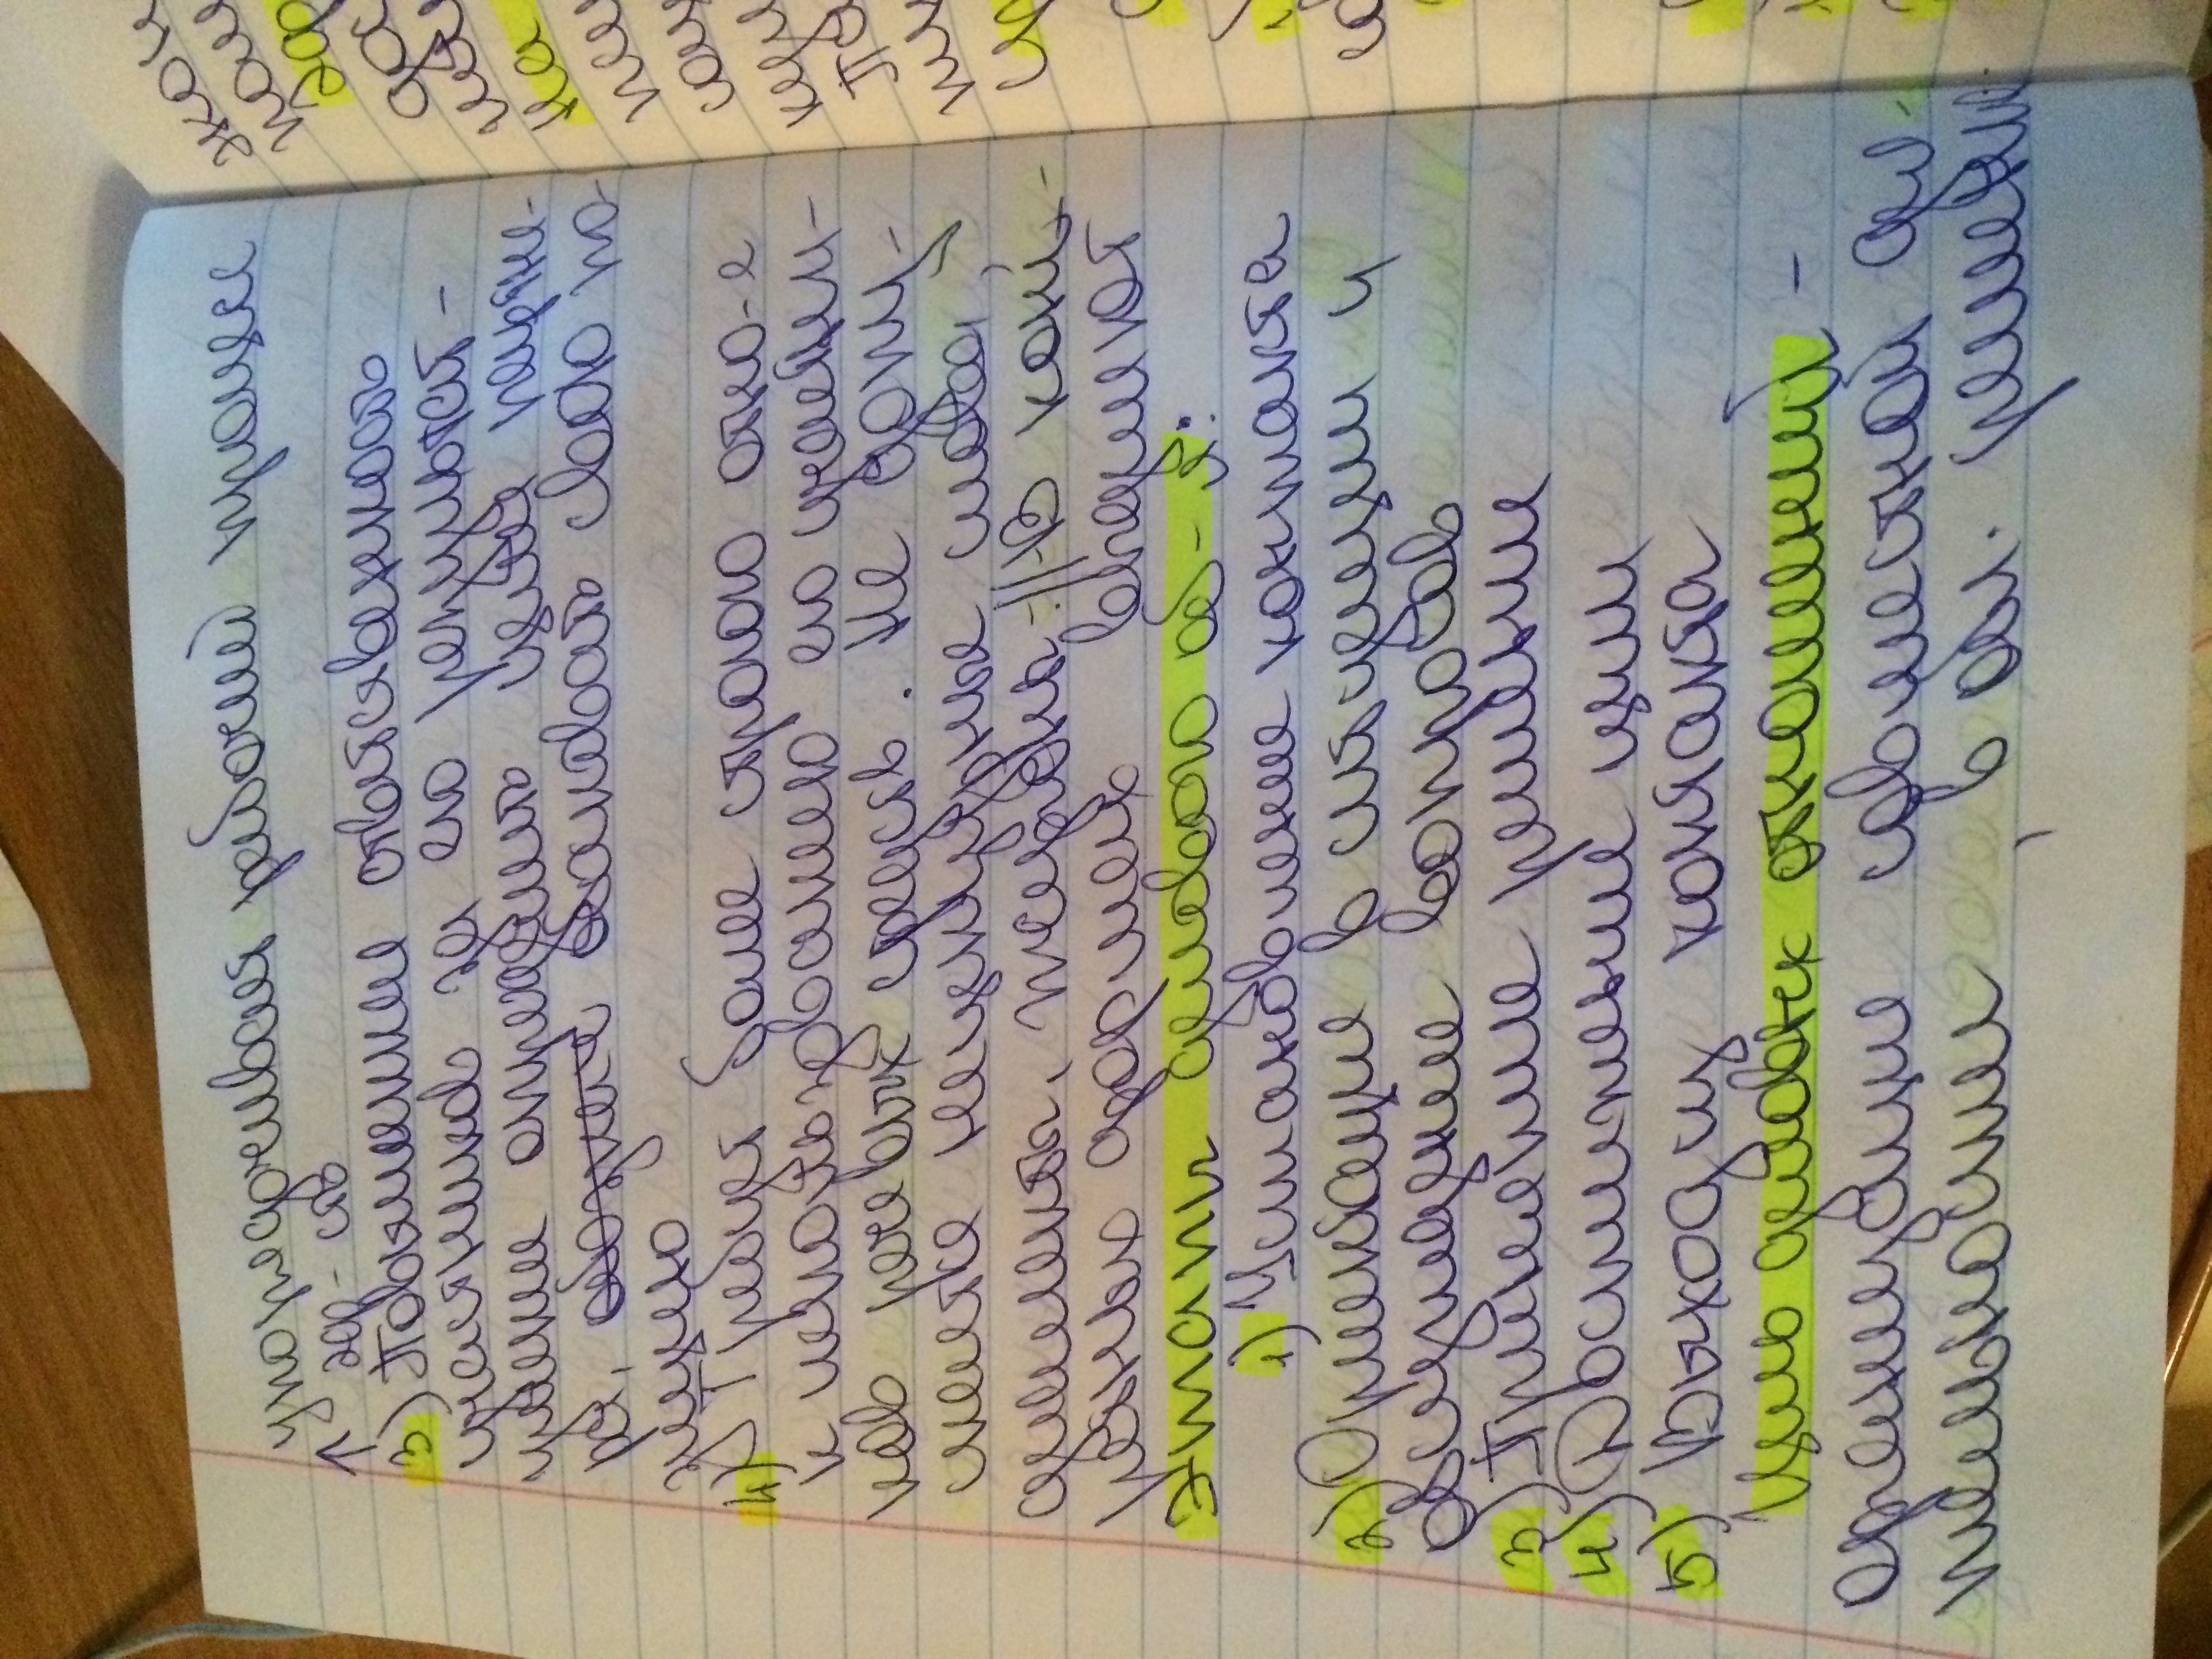 упорядочивает рабочий процесс
↑ эф-сть
3) Повышенные ответственность
участников за его результат -
умение определить цели партне-
ра, обосновать свою по-
зицию
4) Требует более строгого отно-е
к использованию его участни-
ков речевых средств. Не допу-
скается нецензурные слова,
диалекты, жаргоны. // В конк-
ретных формах выделяют
этапы делового об-я:
1) Установление контакта
2) Ориентация в ситуации и
обсуждение вопросов
3) Принятие решение
4) Достижение цели
5) Выход из контакта
Цель деловых отношений -
организация совместной дея-
тельности, в обл.
экон
пол
эф
на
соц